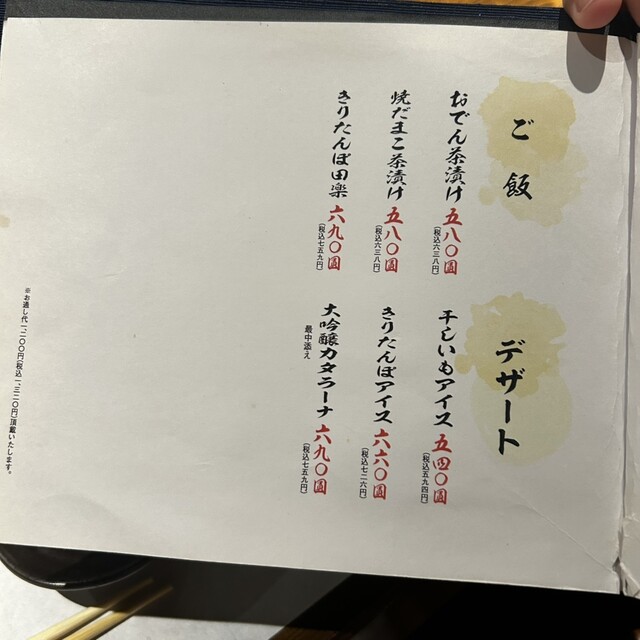 ご飯
おでん茶漬け 五八〇圓
(税込六三八円)
焼だまこ茶漬け 五八〇圓
(税込六三八円)
きりたんぽ田楽 六九〇圓
(税込七五九円)
デザート
干しいもアイス 五四〇圓
(税込五九四円)
きりたんぽアイス 六六〇圓
(税込七二六円)
大吟醸カタラーナ 六九〇圓
最中添え
(税込七五九円)
※お通し代一、二〇〇円(税込一、三二〇円)頂戴いたします。